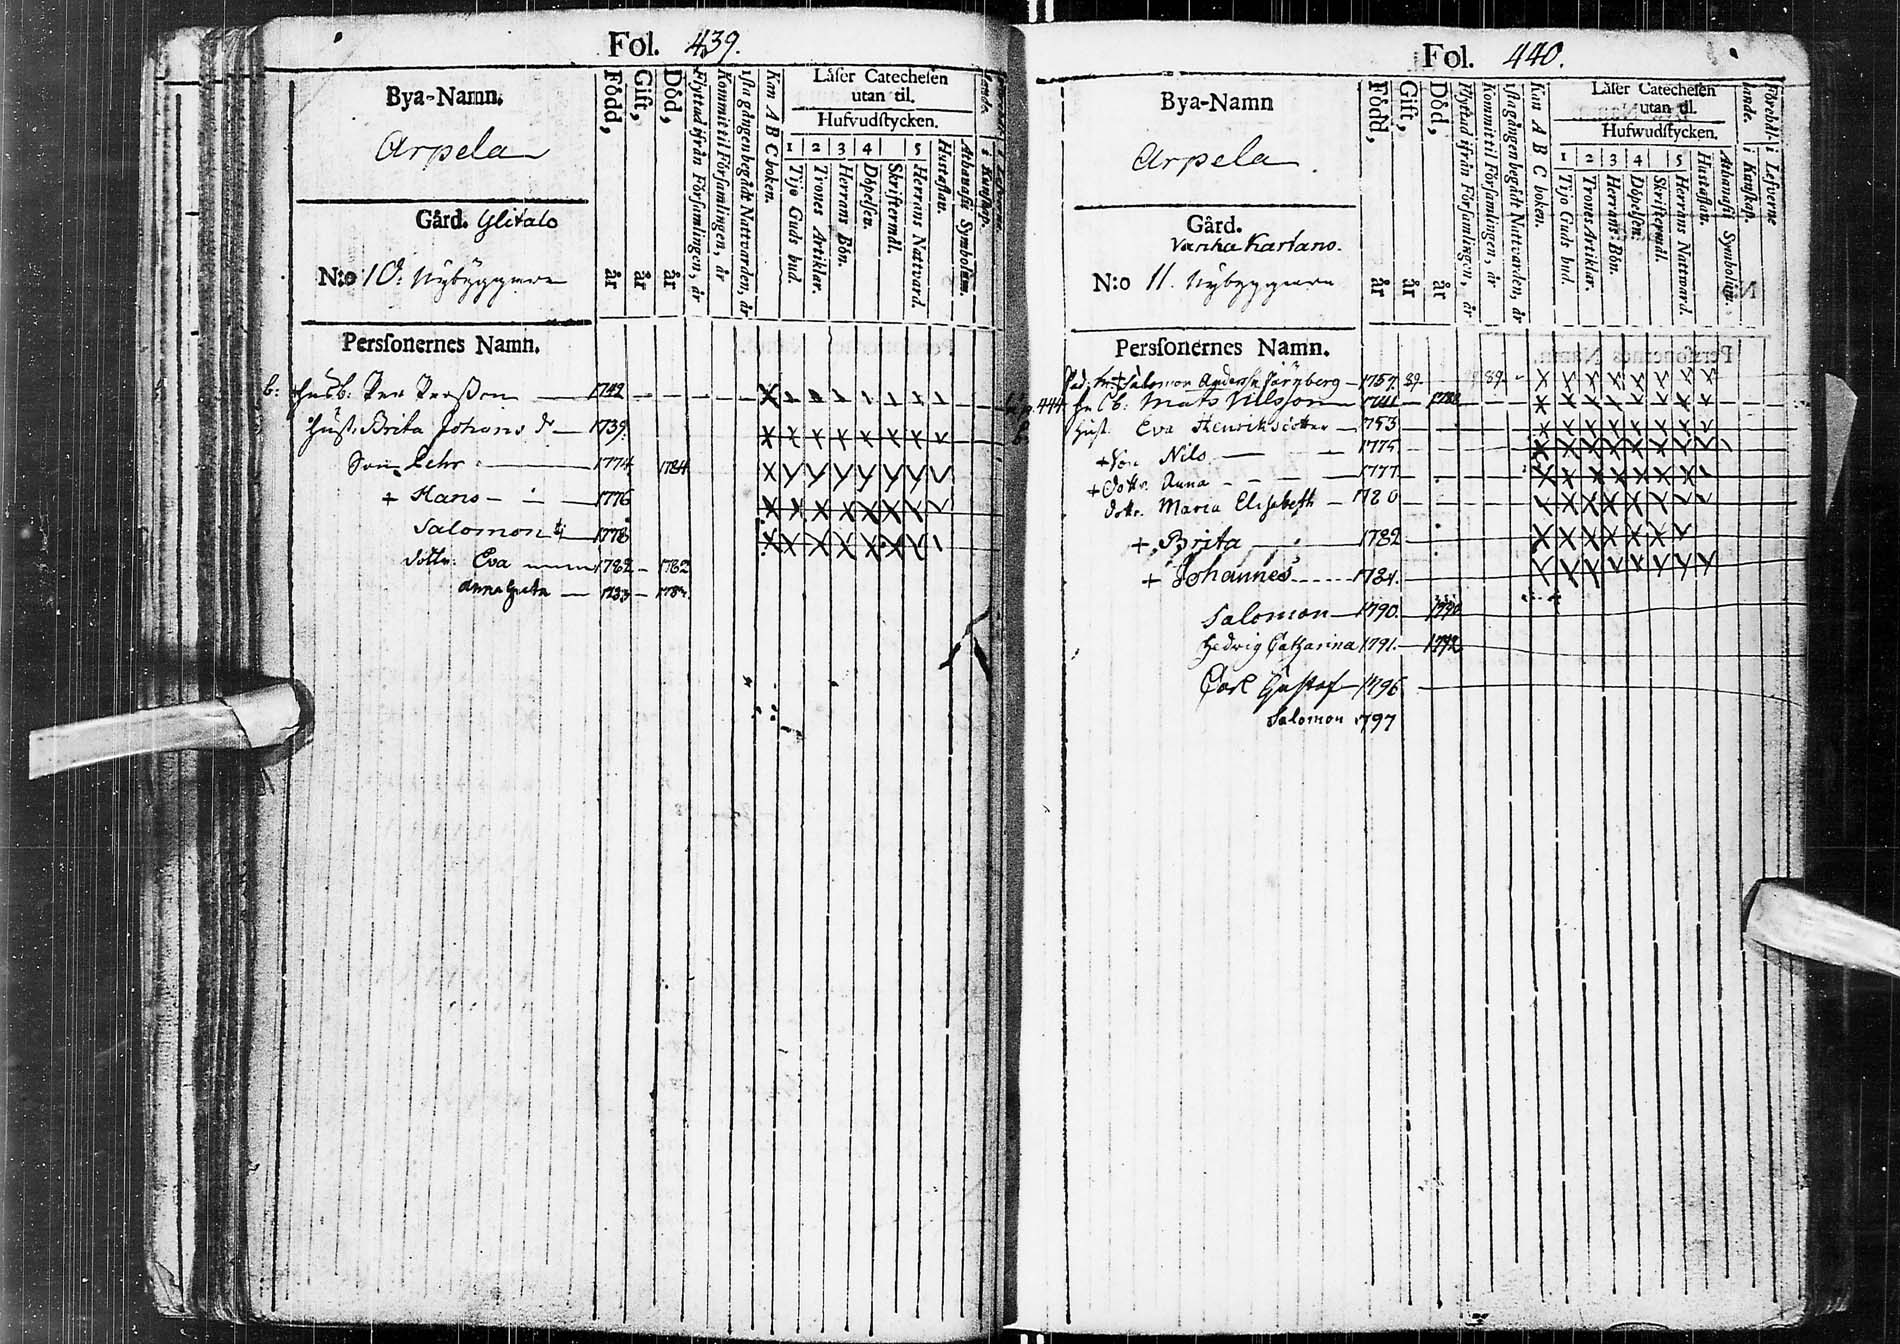 Fol. 439.
Bya-Namn.
Arpela
Gård. Ylitalo
N:o 10. Nybyggare
Född, år
Gift, år
Död, år
Flyttad ifrån Församlingen, år
Kommit til Församlingen, år
Kan A B C boken.
Låser Catechesen
utan til.
Hufvudstycken.
1 2 3 4 5
Tijo Guds bud.
Trones Artiklar.
Herrans Bön.
Döpelsen.
Skriftermål.
Herrans Nattvard.
Hustaflan.
Athanasii Symbolum.
Personernes Namn.
b: Husb: Per Persson 1742
Hust. Brita Johans dr 1739.
Son Pehr 1774 1784
+ Hans 1776
Salomon 1778
dottr. Eva 1782 1782
Anna Greta 1783 1784.
Fol. 440.
Bya-Namn
Arpela
Gård.
Vanha Karlano.
N:o 11. Nybyggare
Född, år
Gift, år
Död, år
Flyttad ifrån Församlingen, år
Kommit til Församlingen, år
sista gången begådt Nattvarden, år
Kan A B C boken.
Låser Catechesen
utan til.
Hufwudstycken.
1 2 3 4 5
Tijo Guds bud.
Trones Artiklar.
Herrans Bön.
Döpelsen.
Skriftermål.
Herrans Nattvard.
Hustaflan.
Athanasii Symbolum.
i Kunskap.
i Lefverne
Personernes Namn.
Salomon Anderss. Järnberg 1757. 89. 89.
444 Mats Nilsson 1741
Hust. Eva Henriksdotter 1753
+ Son Nils 1775
+ dottr. Anna 1777
dottr. Maria Elisabeth 1780
+ Brita 1782
+ Johannes 1784.
Salomon 1790. 1790
Hedvig Catharina 1791. 1792
Carl Gustaf 1796
Salomon 1797